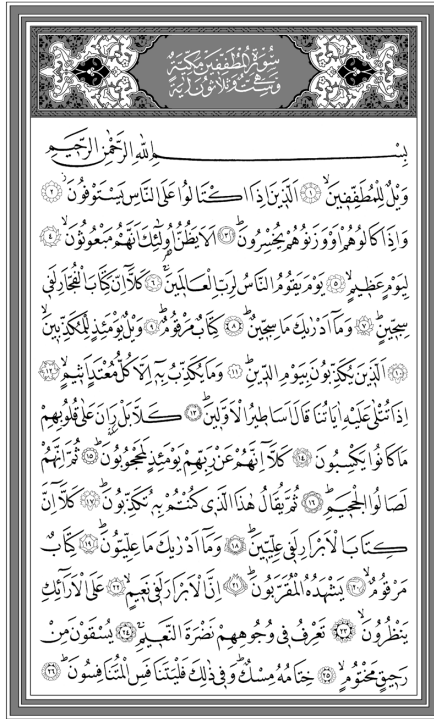 سُورَةُ الْمُطَفِّفِينَ مَكِّيَّةٌ
وَهِىَ سِتٌّ وَثَلَاثُونَ اٰيَةً
بِسْمِ اللّٰهِ الرَّحْمٰنِ الرَّحِيمِ
وَيْلٌ لِلْمُطَفِّفِينَۙ ﴿١﴾ اَلَّذِينَ اِذَا اكْتَالُوا عَلَى النَّاسِ يَسْتَوْفُونَۘ ﴿٢﴾
وَاِذَا كَالُوهُمْ اَوْ وَزَنُوهُمْ يُخْسِرُونَۜ ﴿٣﴾ اَلَا يَظُنُّ اُولٰٓئِكَ اَنَّهُمْ مَبْعُوثُونَۙ ﴿٤﴾
لِيَوْمٍ عَظِيمٍۙ ﴿٥﴾ يَوْمَ يَقُومُ النَّاسُ لِرَبِّ الْعَالَمِينَۜ ﴿٦﴾ كَلَّٓا اِنَّ كِتَابَ الْفُجَّارِ لَفِى
سِجِّينٍۜ ﴿٧﴾ وَمَٓا اَدْرٰيكَ مَا سِجِّينٌۜ ﴿٨﴾ كِتَابٌ مَرْقُومٌۜ ﴿٩﴾ وَيْلٌ يَوْمَئِذٍ لِلْمُكَذِّبِينَۙ
﴿١٠﴾ اَلَّذِينَ يُكَذِّبُونَ بِيَوْمِ الدِّينِۜ ﴿١١﴾ وَمَا يُكَذِّبُ بِهٖٓ اِلَّا كُلُّ مُعْتَدٍ اَثِيمٍۙ ﴿١٢﴾
اِذَا تُتْلٰى عَلَيْهِ اٰيَاتُنَا قَالَ اَسَاطِيرُ الْاَوَّلِينَۜ ﴿١٣﴾ كَلَّا بَلْ رَانَ عَلٰى قُلُوبِهِمْ
مَا كَانُوا يَكْسِبُونَ ﴿١٤﴾ كَلَّٓا اِنَّهُمْ عَنْ رَبِّهِمْ يَوْمَئِذٍ لَمَحْجُوبُونَۜ ﴿١٥﴾ ثُمَّ اِنَّهُمْ
لَصَالُوا الْجَحِيمِۜ ﴿١٦﴾ ثُمَّ يُقَالُ هٰذَا الَّذِى كُنْتُمْ بِهٖ تُكَذِّبُونَۜ ﴿١٧﴾ كَلَّٓا اِنَّ
كِتَابَ الْاَبْرَارِ لَفِى عِلِّيِّينَۜ ﴿١٨﴾ وَمَٓا اَدْرٰيكَ مَا عِلِّيُّونَۜ ﴿١٩﴾ كِتَابٌ
مَرْقُومٌۙ ﴿٢٠﴾ يَشْهَدُهُ الْمُقَرَّبُونَۜ ﴿٢١﴾ اِنَّ الْاَبْرَارَ لَفِى نَعِيمٍۙ ﴿٢٢﴾ عَلَى الْاَرَٓائِكِ
يَنْظُرُونَۙ ﴿٢٣﴾ تَعْرِفُ فِى وُجُوهِهِمْ نَضْرَةَ النَّعِيمِۚ ﴿٢٤﴾ يُسْقَوْنَ مِنْ
رَحِيقٍ مَخْتُومٍۙ ﴿٢٥﴾ خِتَامُهُ مِسْكٌۜ وَفِى ذٰلِكَ فَلْيَتَنَافَسِ الْمُتَنَافِسُونَۜ ﴿٢٦﴾